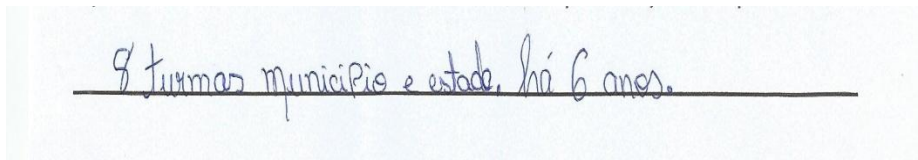 8 turmas município e estado, há 6 anos.